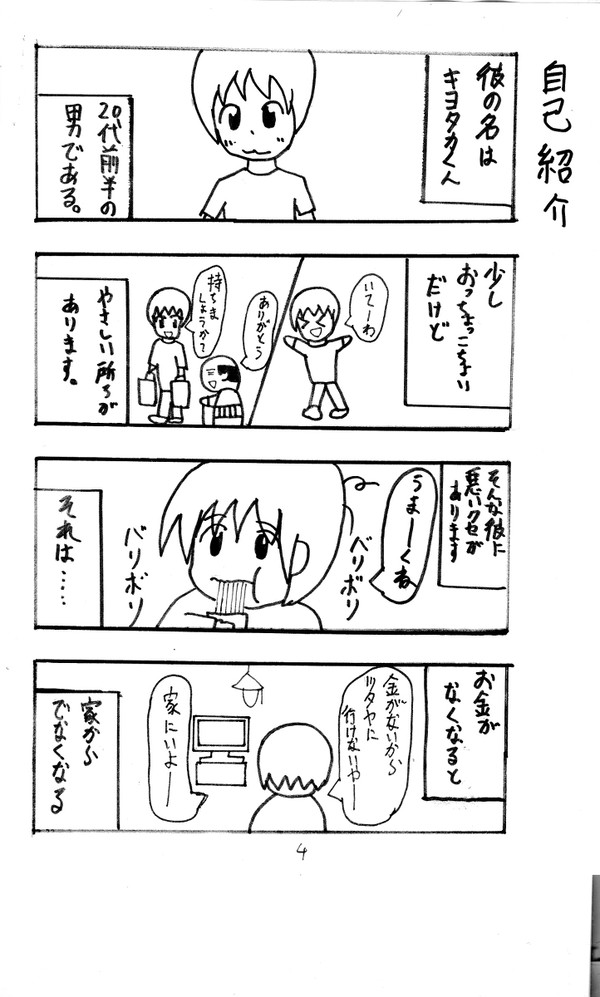 自己紹介
彼の名は
キヨタカくん
20代前半の
男である。
少し
おっちょこちょい
だけど
いてーわ
ありがとう
持ちま
しょうか?
やさしい所もが
あります。
そんな彼に
悪いクセが
あります
うまーくね
ベリボリ
バリボリ
それは……
お金が
なくなると
金がないから
ツタヤに
行けないやー
家にいよー
家から
でなくなる
4